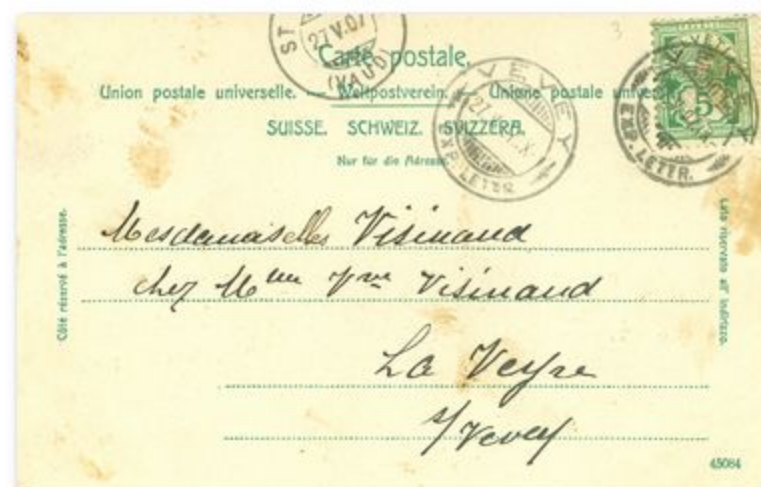 ST
27 V.07
(VAUD)
3
Carte postale.
Union postale universelle. — Weltpostverein. — Unione postale
SUISSE. SCHWEIZ. SVIZZERA.
Nur für die Adresse
VEVEY
27.
EXP. LETTR.
VEVEY
5
EXP. LETTR.
Côté réservé à l'adresse.
Lato riservato all' indirizzo.
Mesdemoiselles Visinaud
chez Mme Vve Visinaud
La Veyre
s/Vevey
45084